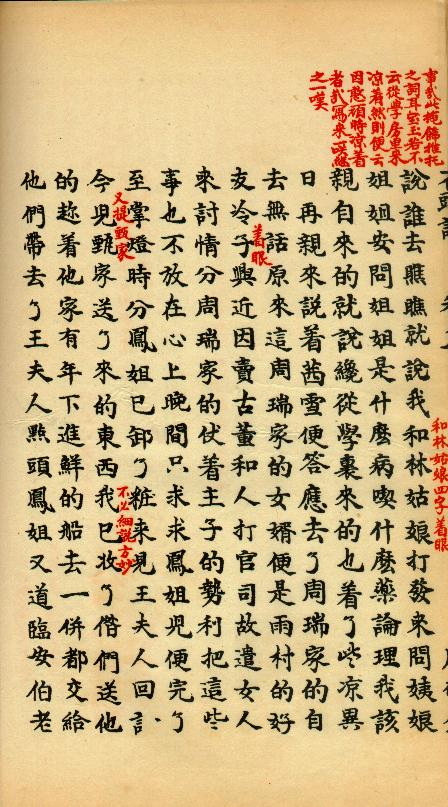 事哉此掩飾推托
之詞耳宝玉若不
云從學房里來
凉着然則便云
因憨頑時凉着
者哉寫來一笑継
之一嘆
說誰去瞧瞧就說我和林姑娘打發來問姨娘
和林姑娘四字着眼
姐姐安問姐姐是什麽病喫什麽藥論理我該
親自來的就說纔從學裏來的也着了些凉異
日再親來説着茜雪便答應去了周瑞家的自
去無話原來這周瑞家的女婿便是雨村的好
着眼
友冷子與近因賣古董和人打官司故遣女人
來討情分周瑞家的仗着主子的勢利把這些
事也不放在心上晚間只求求鳳姐兒便完了
至掌燈時分鳳姐已卸了粧來見王夫人回
又提甄家
不必細說方妙
今兒甄家送了來的東西我已收了偺們送他
的趂着他家有年下進鮮的船去一併都交給
他們帶去了王夫人點頭鳳姐又道臨安伯老